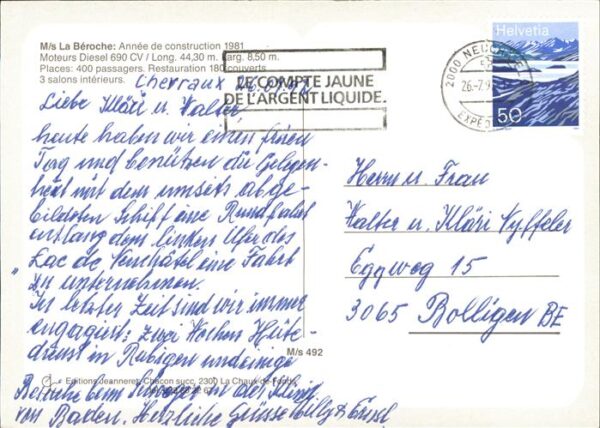 M/s La Béroche: Année de construction 1981
Moteurs Diesel 690 CV / Long. 44,30 m. Larg. 8,50 m.
Places: 400 passagers. Restauration 180 couverts.
3 salons intérieurs.
LE COMPTE JAUNE
DE L'ARGENT LIQUIDE.
2000 NEUCHÂTEL
26.-7.9
EXPÉD
Helvetia
50
Chevroux
Liebe Kläri u. Walter
heute haben wir einen freien
Tag und benützen die Gelegen-
heit mit dem umseits abge-
bildeten Schiff eine Rundfahrt
entlang dem linken Ufer des
Lac de Neuchâtel eine Fahrt
zu unternehmen.
In letzter Zeit sind wir immer
engagiert: zwei Wochen Hüte-
dienst in Rubigen und einige
Besuche beim Schwager in der Klinik
von Baden. Herzliche Grüsse Willy &
M/s 492
Editions Jeanneret-Chacon succ. 2300 La Chaux-de-Fonds
Herrn u. Frau
Walter u. Kläri Nyffeler
Eggweg 15
3065 Bolligen BE